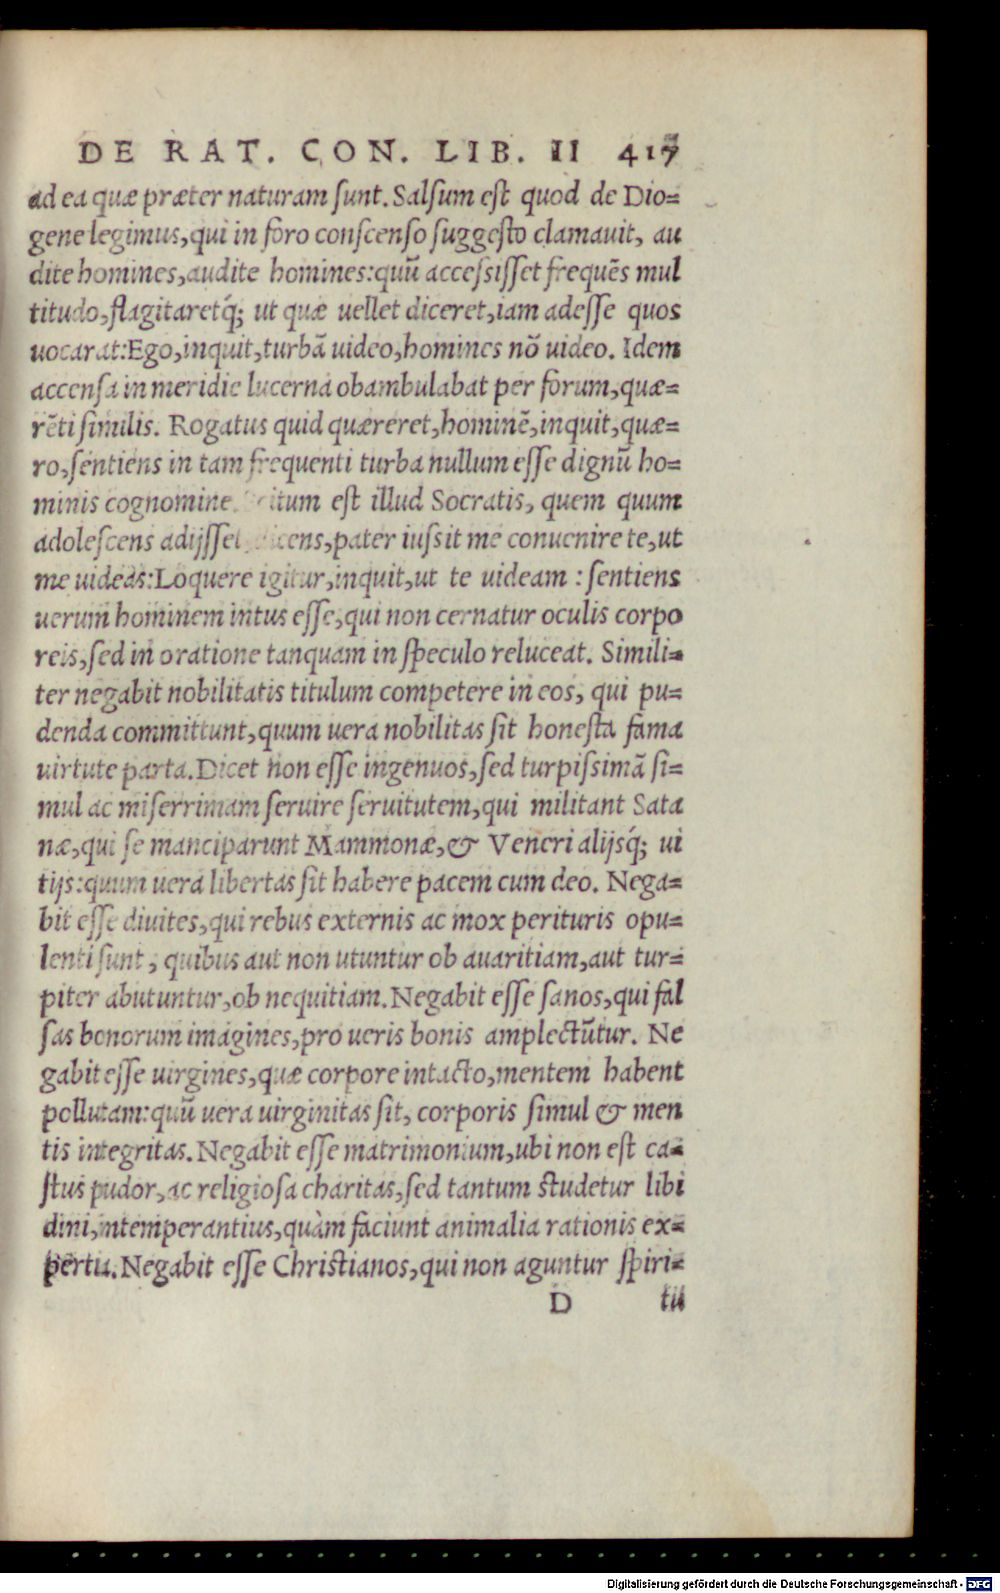 DE RAT. CON. LIB. II 417
ad ea quæ præter naturam sunt. Salsum est quod de Dio=
gene legimus, qui in foro conscenso suggesto clamauit, au
dite homines, audite homines: quū accessisset frequēs mul
titudo, flagitaretq́; ut quæ uellet diceret, iam adesse quos
uocarat: Ego, inquit, turbā uideo, homines nō uideo. Idem
accensa in meridie lucerna obambulabat per forum, quæ=
rēti similis. Rogatus quid quæreret, hominē, inquit, quæ=
ro, sentiens in tam frequenti turba nullum esse dignū ho=
minis cognomine. est illud Socratis, quem quum
adolescens adijsset pater iussit me conuenire te, ut
me uideas: Loquere igitur, inquit, ut te uideam : sentiens
uerum hominem intus esse, qui non cernatur oculis corpo
reis, sed in oratione tanquam in speculo reluceat. Simili=
ter negabit nobilitatis titulum competere in eos, qui pu=
denda committunt, quum uera nobilitas sit honesta fama
uirtute parta. Dicet non esse ingenuos, sed turpissimā si=
mul ac miserrimam seruire seruitutem, qui militant Sata
næ, qui se manciparunt Mammonæ, & Veneri alijsq́; ui
tijs: quum uera libertas sit habere pacem cum deo. Nega=
bit esse diuites, qui rebus externis ac mox perituris opu=
lenti sunt, quibus aut non utuntur ob auaritiam, aut tur=
piter abutuntur, ob nequitiam. Negabit esse sanos, qui fal
sas bonorum imagines, pro ueris bonis amplectūtur. Ne
gabit esse uirgines, quæ corpore intacto, mentem habent
pollutam: quū uera uirginitas sit, corporis simul & men
tis integritas. Negabit esse matrimonium, ubi non est ca=
stus pudor, ac religiosa charitas, sed tantum studetur libi
dini, intemperantius, quàm faciunt animalia rationis ex=
pertia. Negabit esse Christianos, qui non aguntur spiri=
D tu
Digitalisierung gefördert durch die Deutsche Forschungsgemeinschaft - DFG